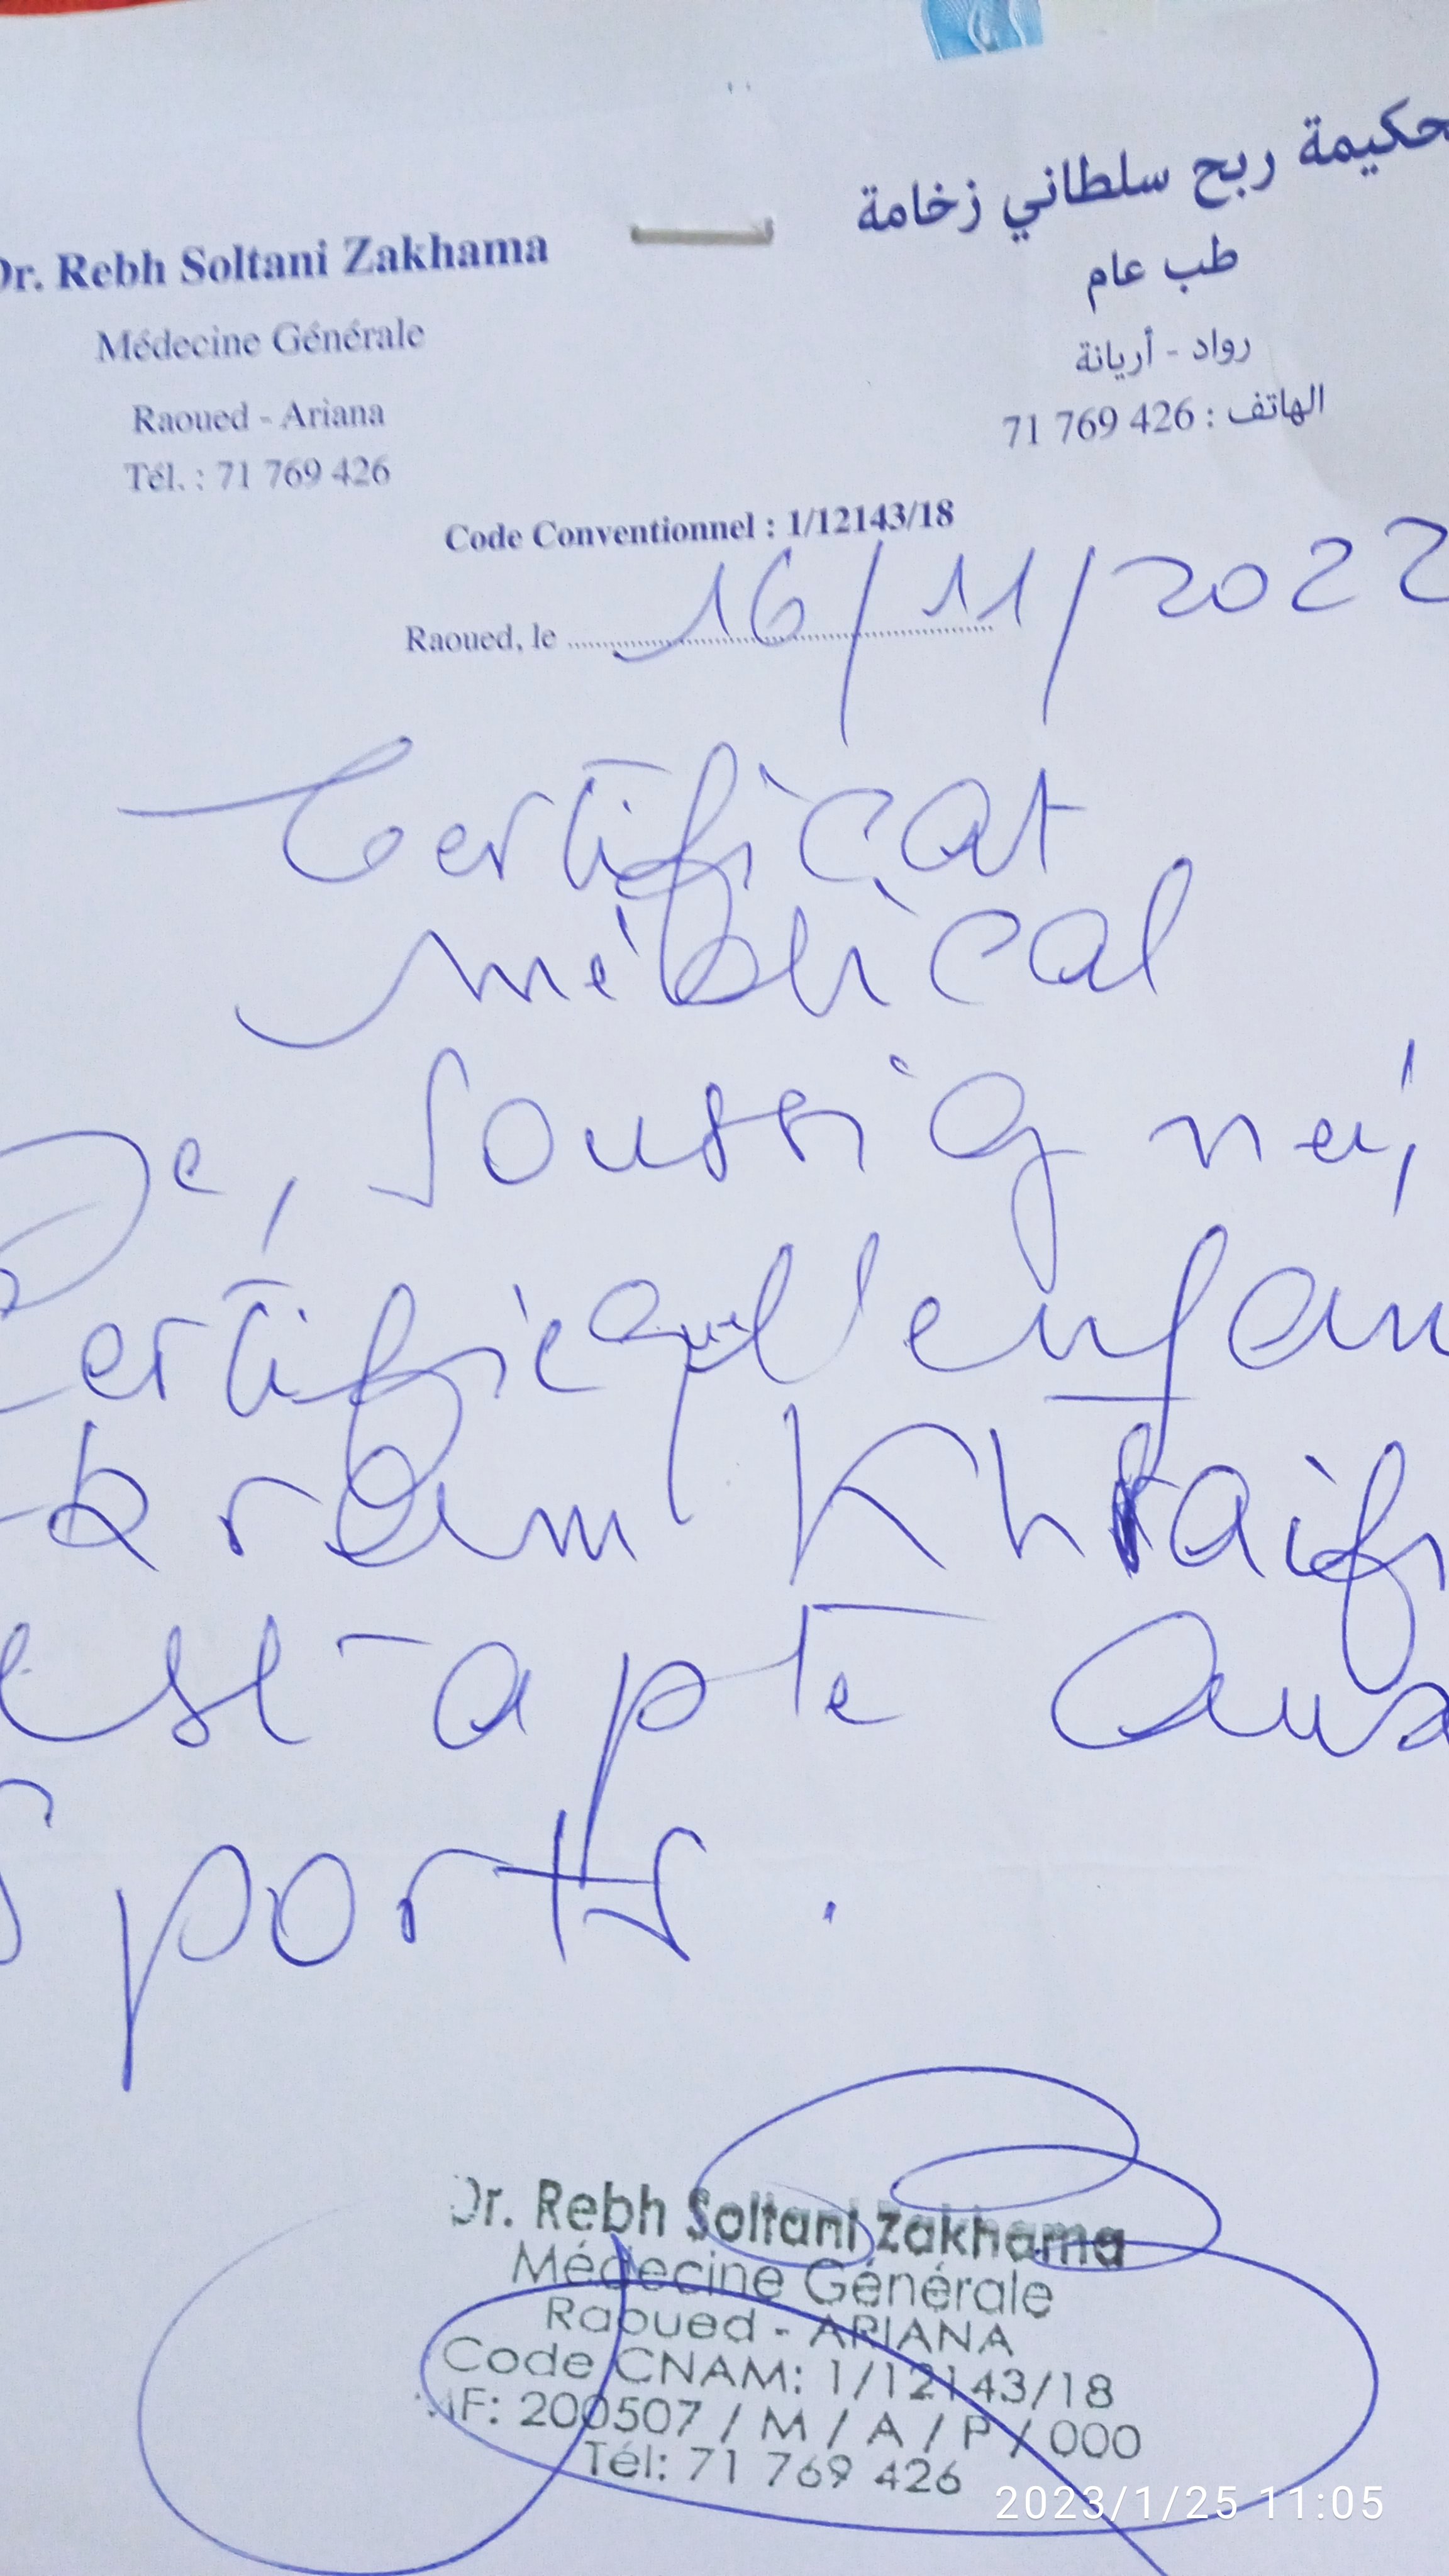 Dr. Rebh Soltani Zakhama
Médecine Générale
Raoued - Ariana
Tél. : 71 769 426
حكيمة ربح سلطاني زخامة
طب عام
رواد - أريانة
الهاتف : 426 769 71
Code Conventionnel : 1/12143/18
Raoued, le 16/11/2022
Certificat
médical
Je, soussigné,
certifie que l'enfan
kram Khraif
est apte aux
sports.
Dr. Rebh Soltani Zakhama
Médecine Générale
Raoued - ARIANA
Code CNAM: 1/12143/18
MF: 200507 / M / A / P / 000
Tél: 71 769 426
2023/1/25 11:05